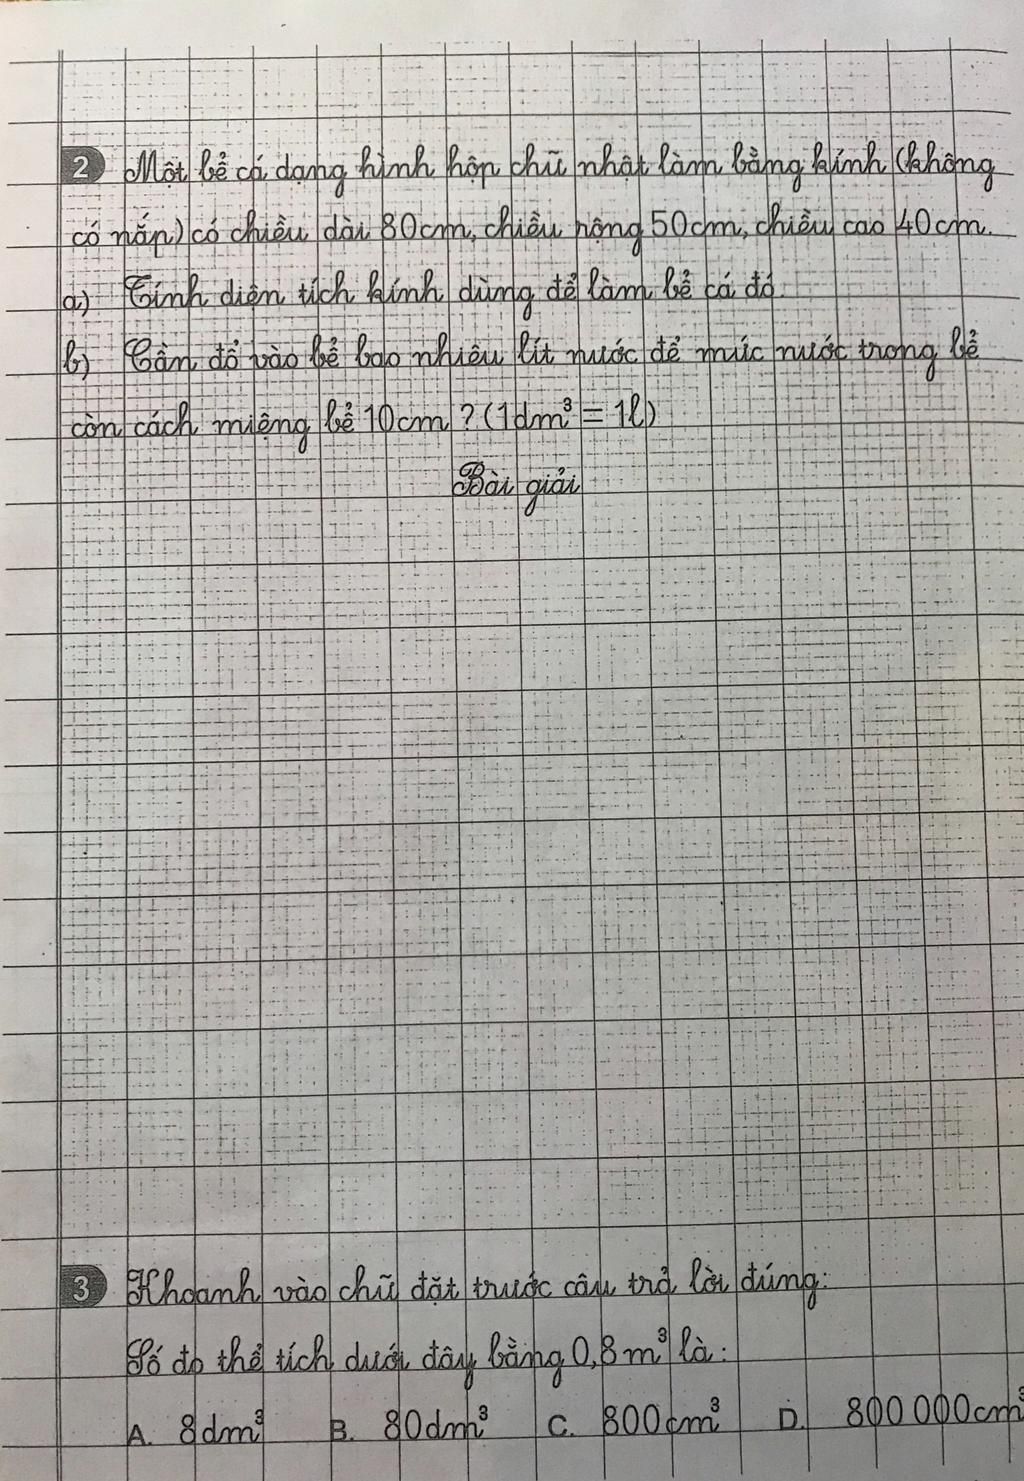 2 Một bể cá dạng hình hộp chữ nhật làm bằng kính (không
có nắp) có chiều dài 80cm, chiều rộng 50cm, chiều cao 40cm.
a) Tính diện tích kính dùng để làm bể cá đó.
b) Cần đổ vào bể bao nhiêu lít nước để mức nước trong bể
còn cách miệng bể 10cm ? (1dm³ = 1l)
Bài giải
3 Khoanh vào chữ đặt trước câu trả lời đúng:
Số đo thể tích dưới đây bằng 0,8m³ là:
A. 8dm³ B. 80dm³ C. 800cm³ D. 800 000cm³